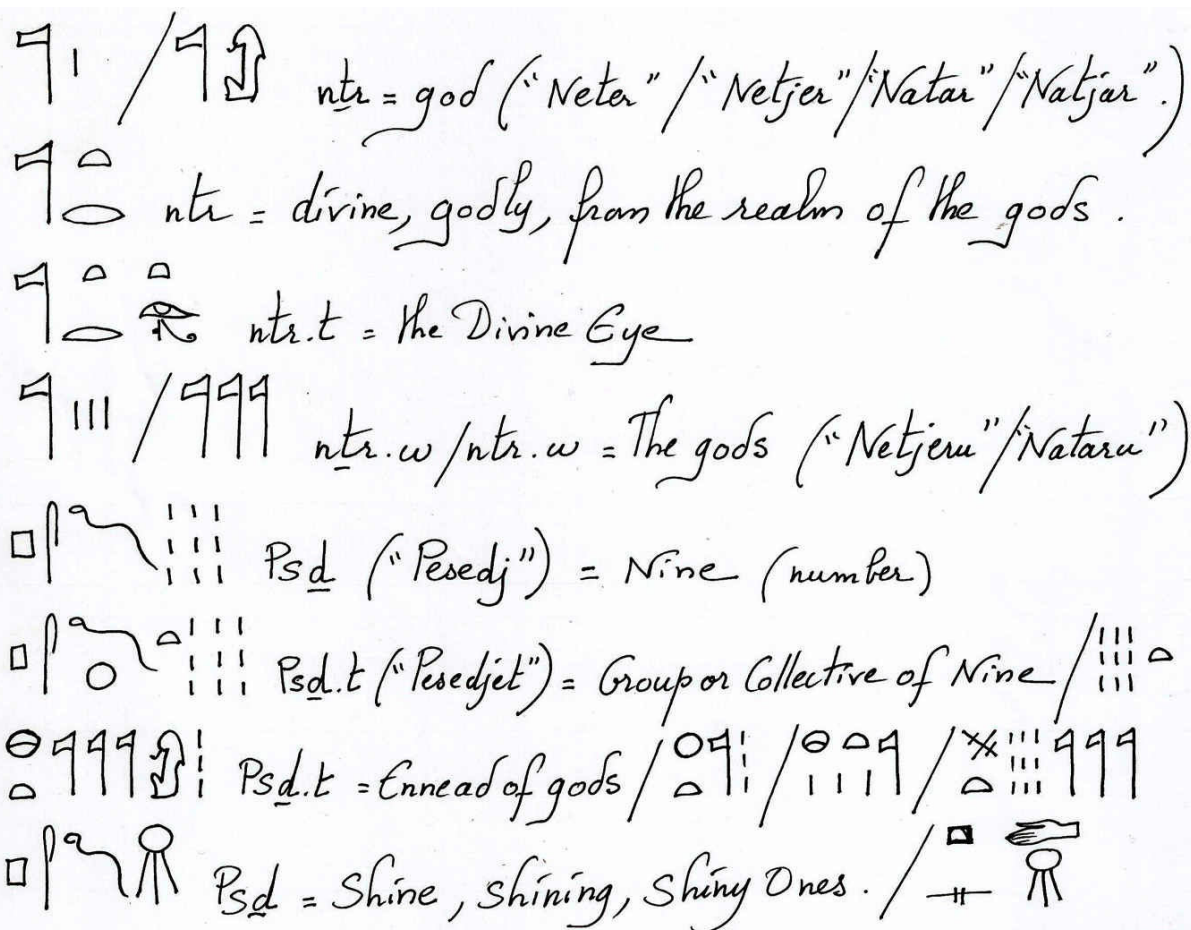 𓊹𓏤 / 𓊹𓀭 nṯr = god ("Neter" / "Netjer" / "Natar" / "Natjar".)
𓊹𓏏𓂋 ntr = divine, godly, from the realm of the gods.
𓊹𓏏𓂋𓏏𓂀 ntr.t = the Divine Eye
𓊹𓏪 / 𓊹𓊹𓊹 nṯr.w / ntr.w = The gods ("Netjeru" / "Nataru")
Psḏ ("Pesedj") = Nine (number)
Psḏ.t ("Pesedjet") = Group or Collective of Nine /
Psḏ.t = Ennead of gods / / /
Psḏ = Shine, shining, Shiny Ones. /